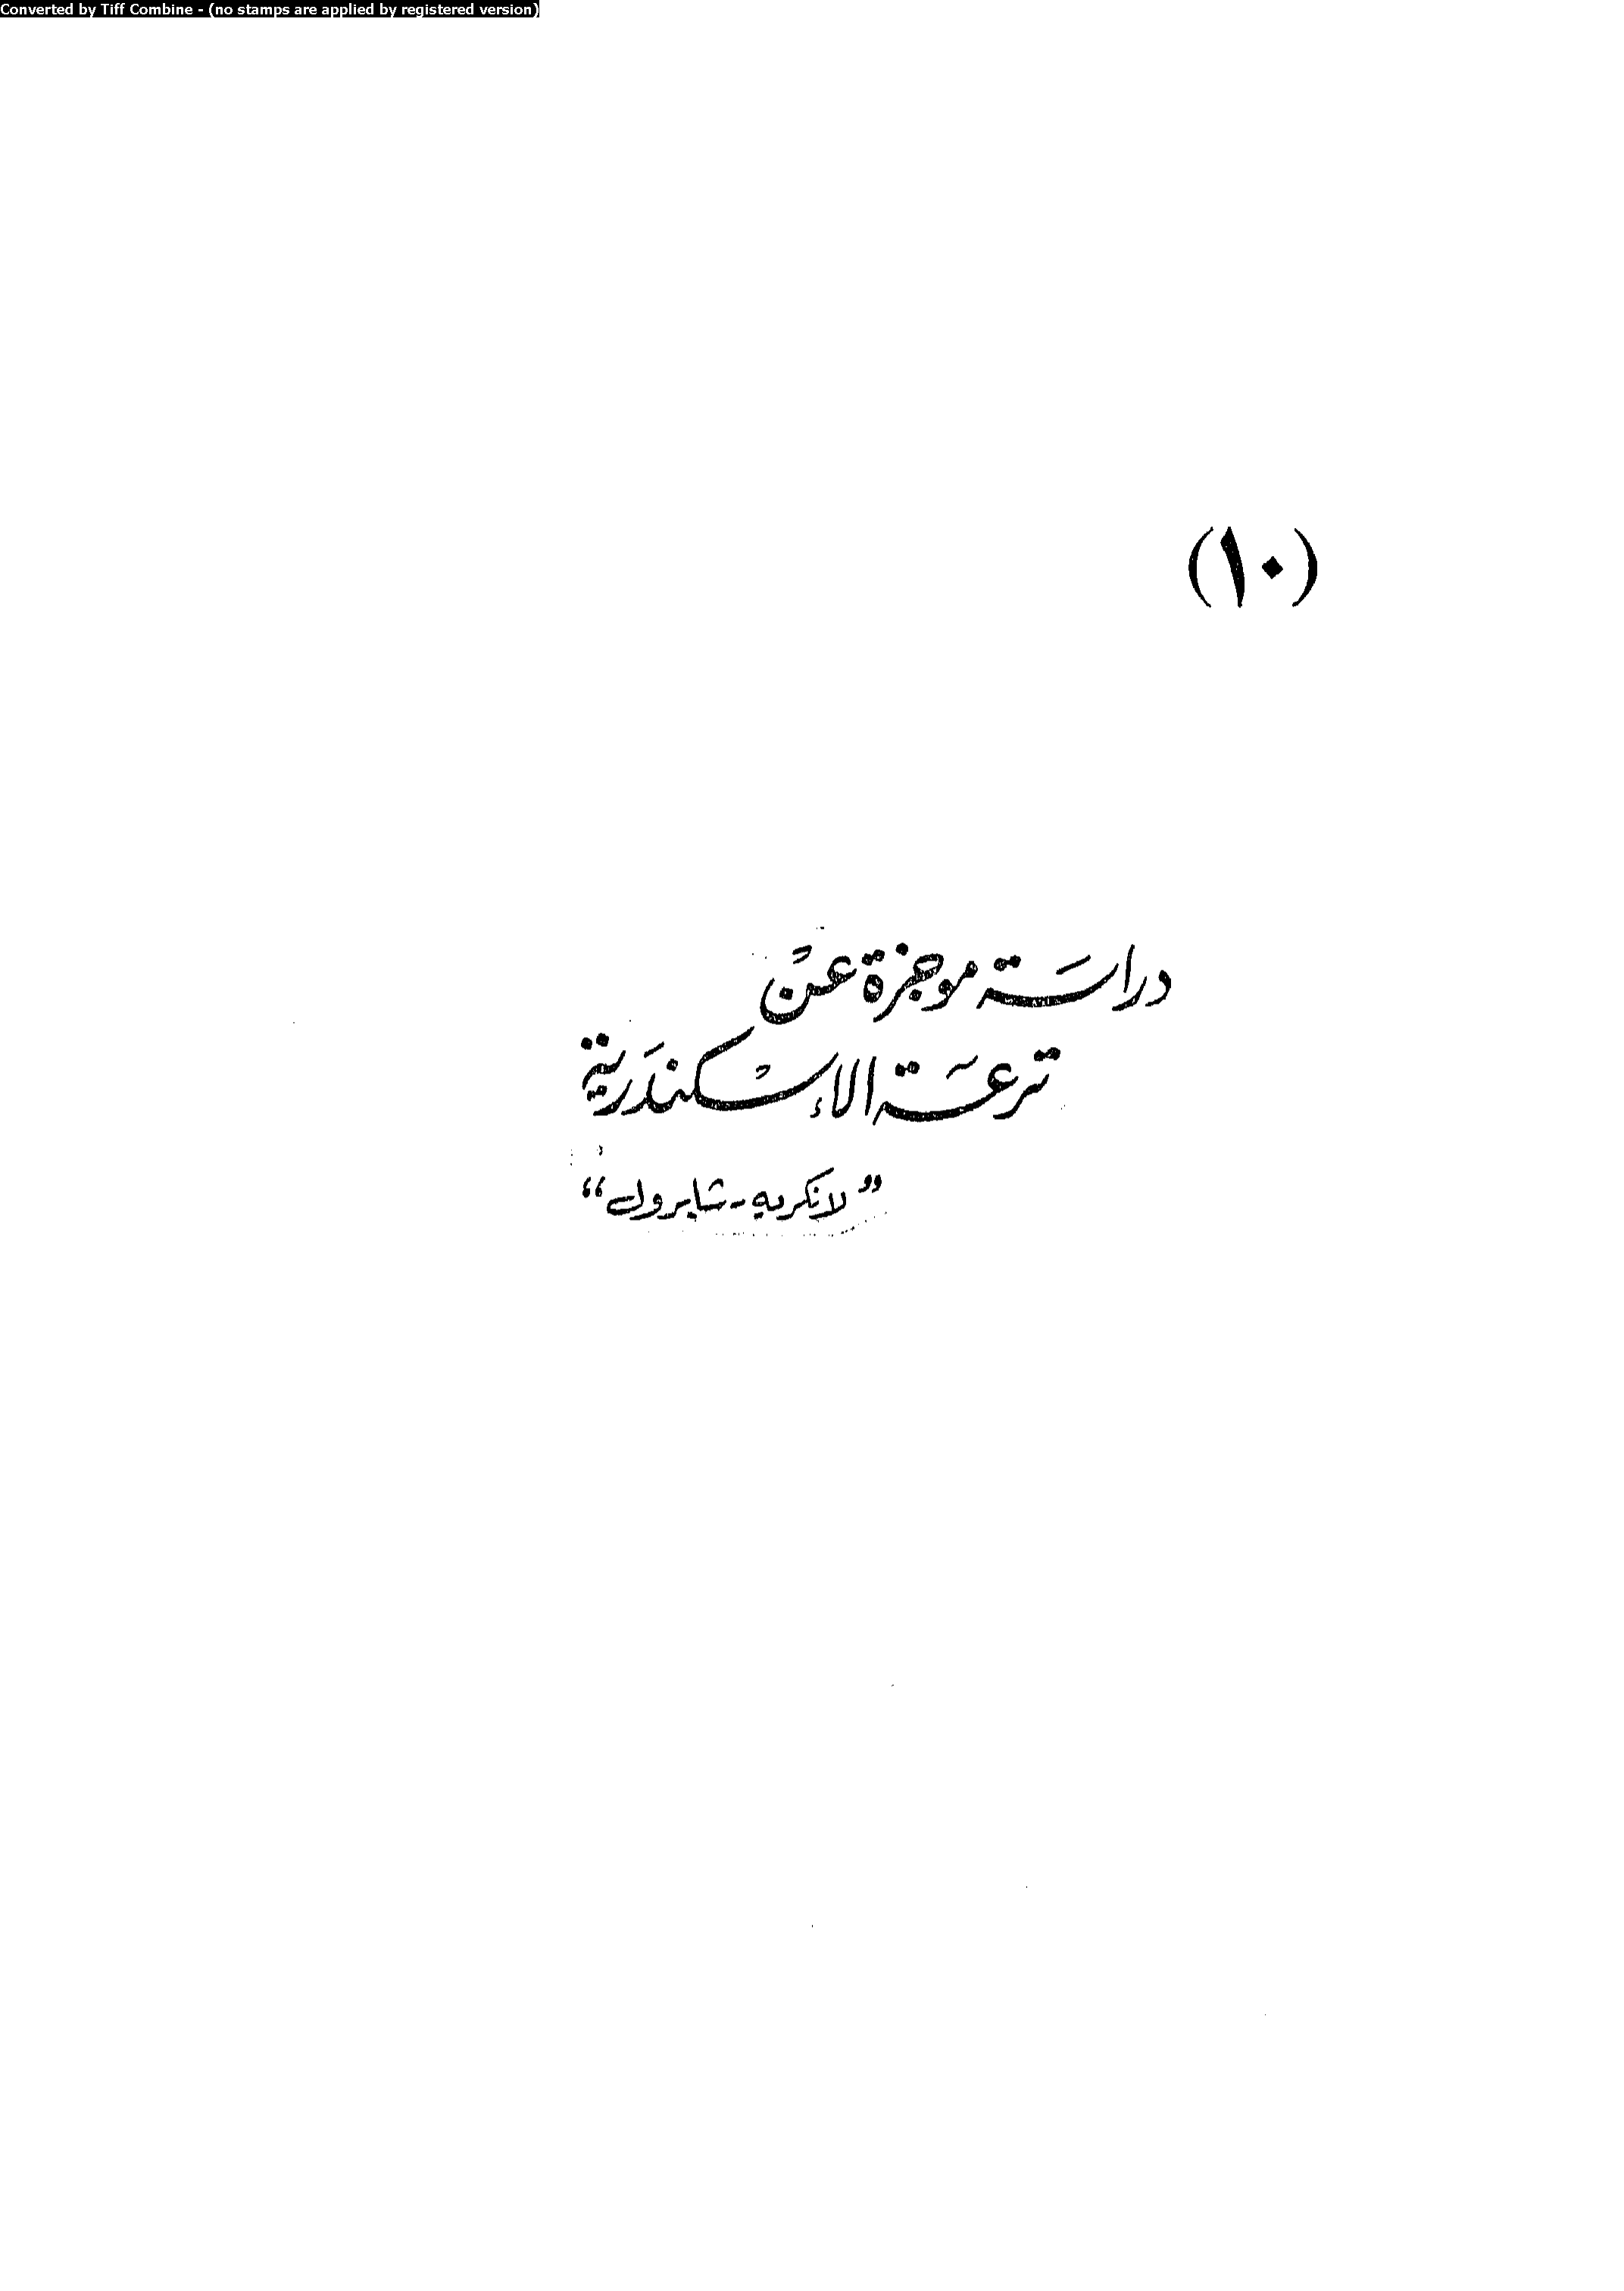 Converted by Tiff Combine - (no stamps are applied by registered version)
(١٠)
دراسَة موجزة عنْ
ترعَة الإسْكندَرية
"لانكريه - شابرول"